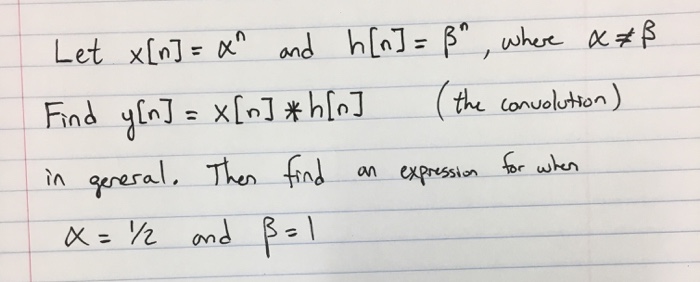 Let x[n] = αⁿ and h[n] = βⁿ, where α ≠ β
Find y[n] = x[n] * h[n] (the convolution)
in general. Then find an expression for when
α = 1/2 and β = 1